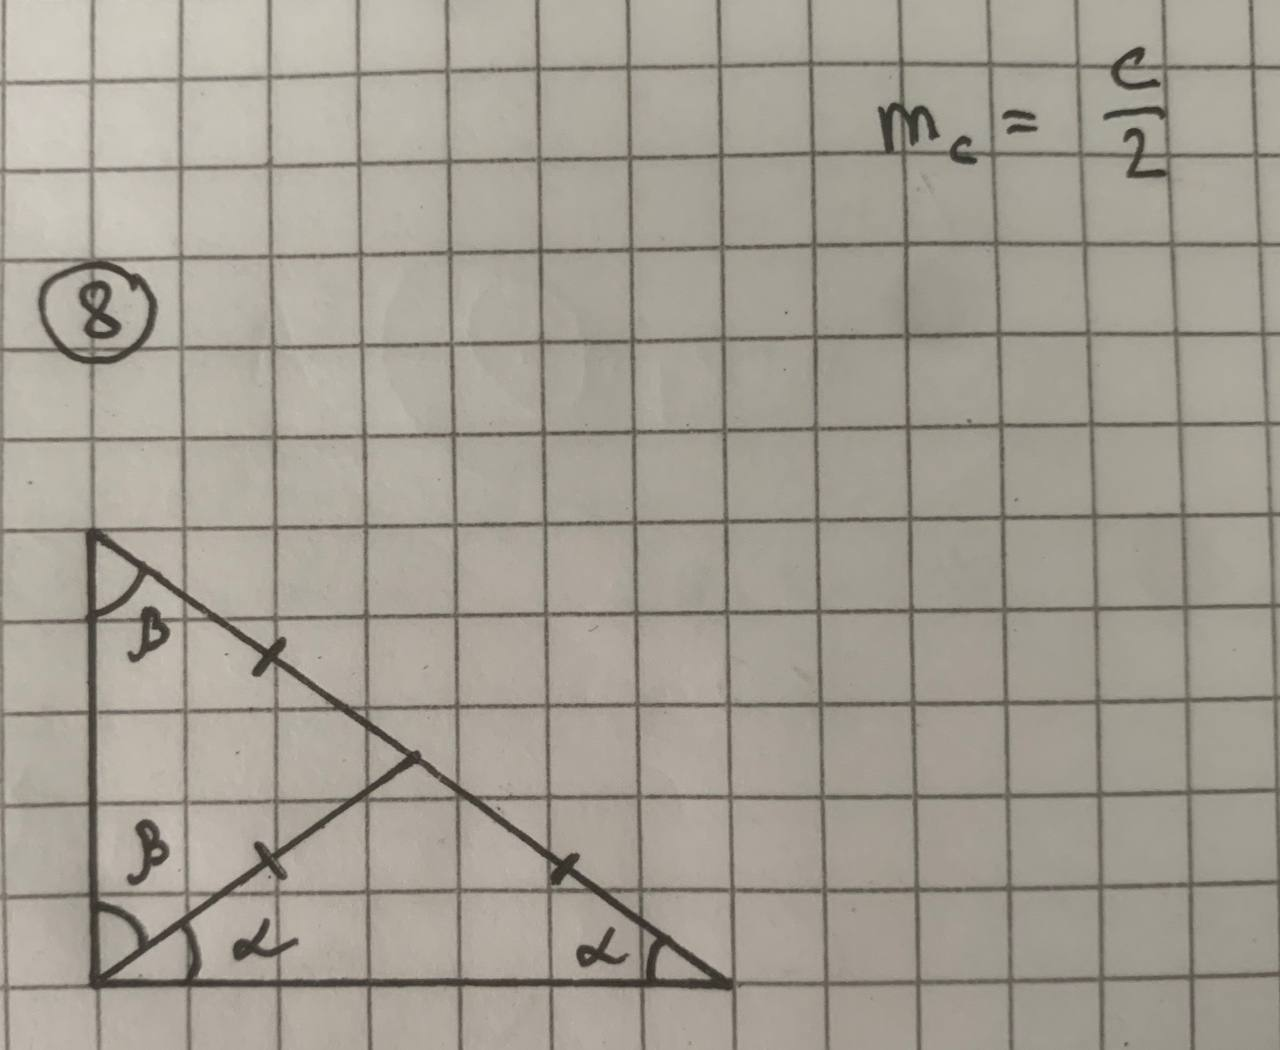 m_c = c/2
8
β
β
α α